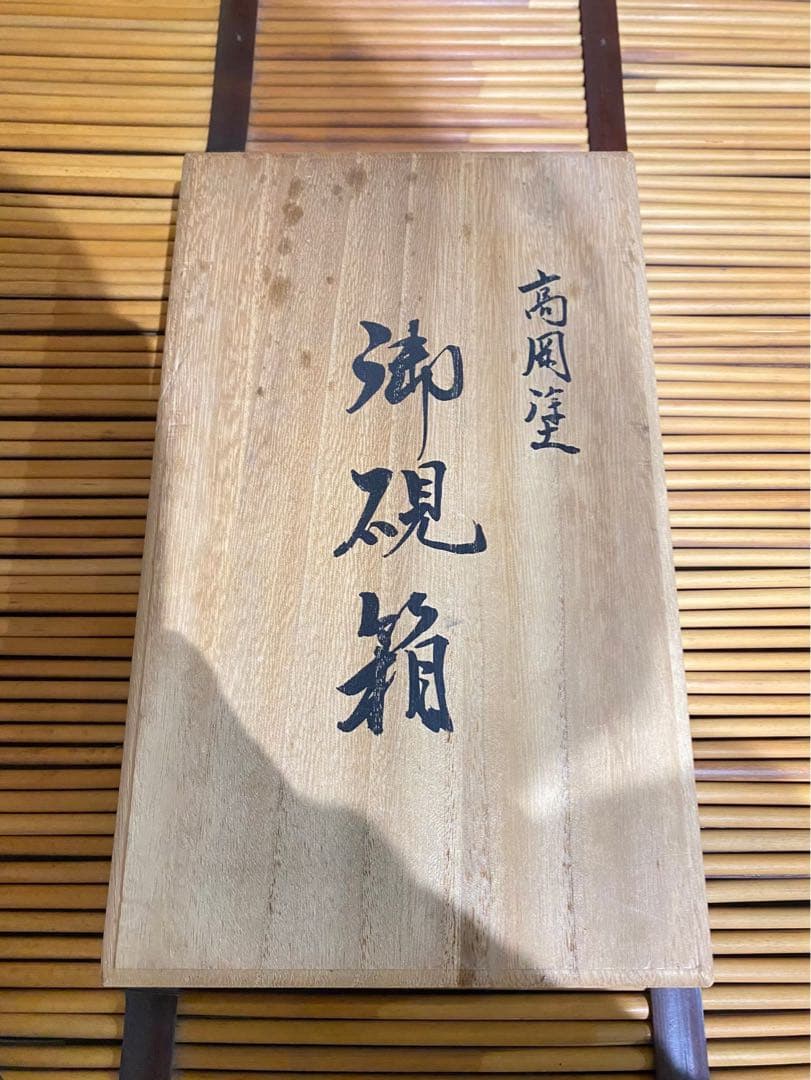 高岡塗
御硯箱